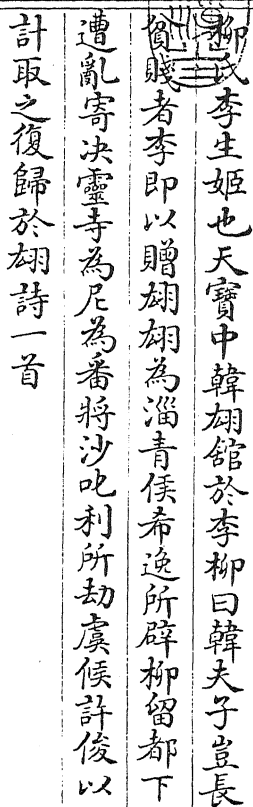 柳氏李生姬也天寶中韓翃舘於李柳曰韓夫子豈長
貧賤者李即以贈翃翃為淄青侯希逸所辟柳留都下
遭亂寄决靈寺為尼為番將沙吒利所刧虞候許俊以
計取之復歸於翃詩一首